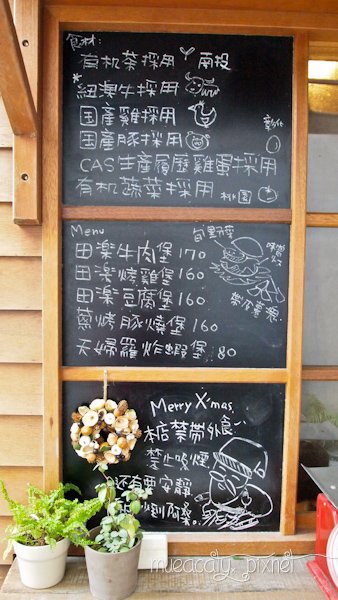 食材:
有机茶採用 南投
*紐澳牛採用
国産雞採用
国産豚採用 彰化
CAS生産履歷雞蛋採用
有机蔬菜採用 桃園
Menu
旬野菜
田楽牛肉堡 170
田楽烤雞堡 160
田楽豆腐堡 160
蔥烤豚燒堡 160
天婦羅炸蝦堡 180
Merry X'mas
本店禁帶外食
禁止吸煙
還有要安靜
mueacaty. pixnet